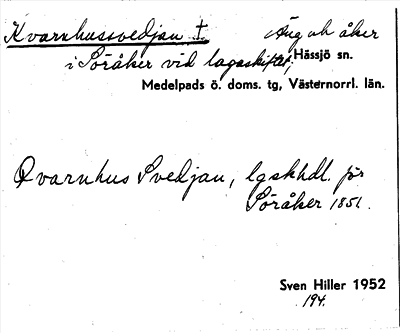 Kvarnhussvedjan †. Äng och åker
i Söråker vid lagaskiftet, Hässjö sn.
Medelpads ö. doms. tg, Västernorrl. län.
Qvarnhus Svedjan, lgskhdl. för
Söråker 1851.
Sven Hiller 1952
194.